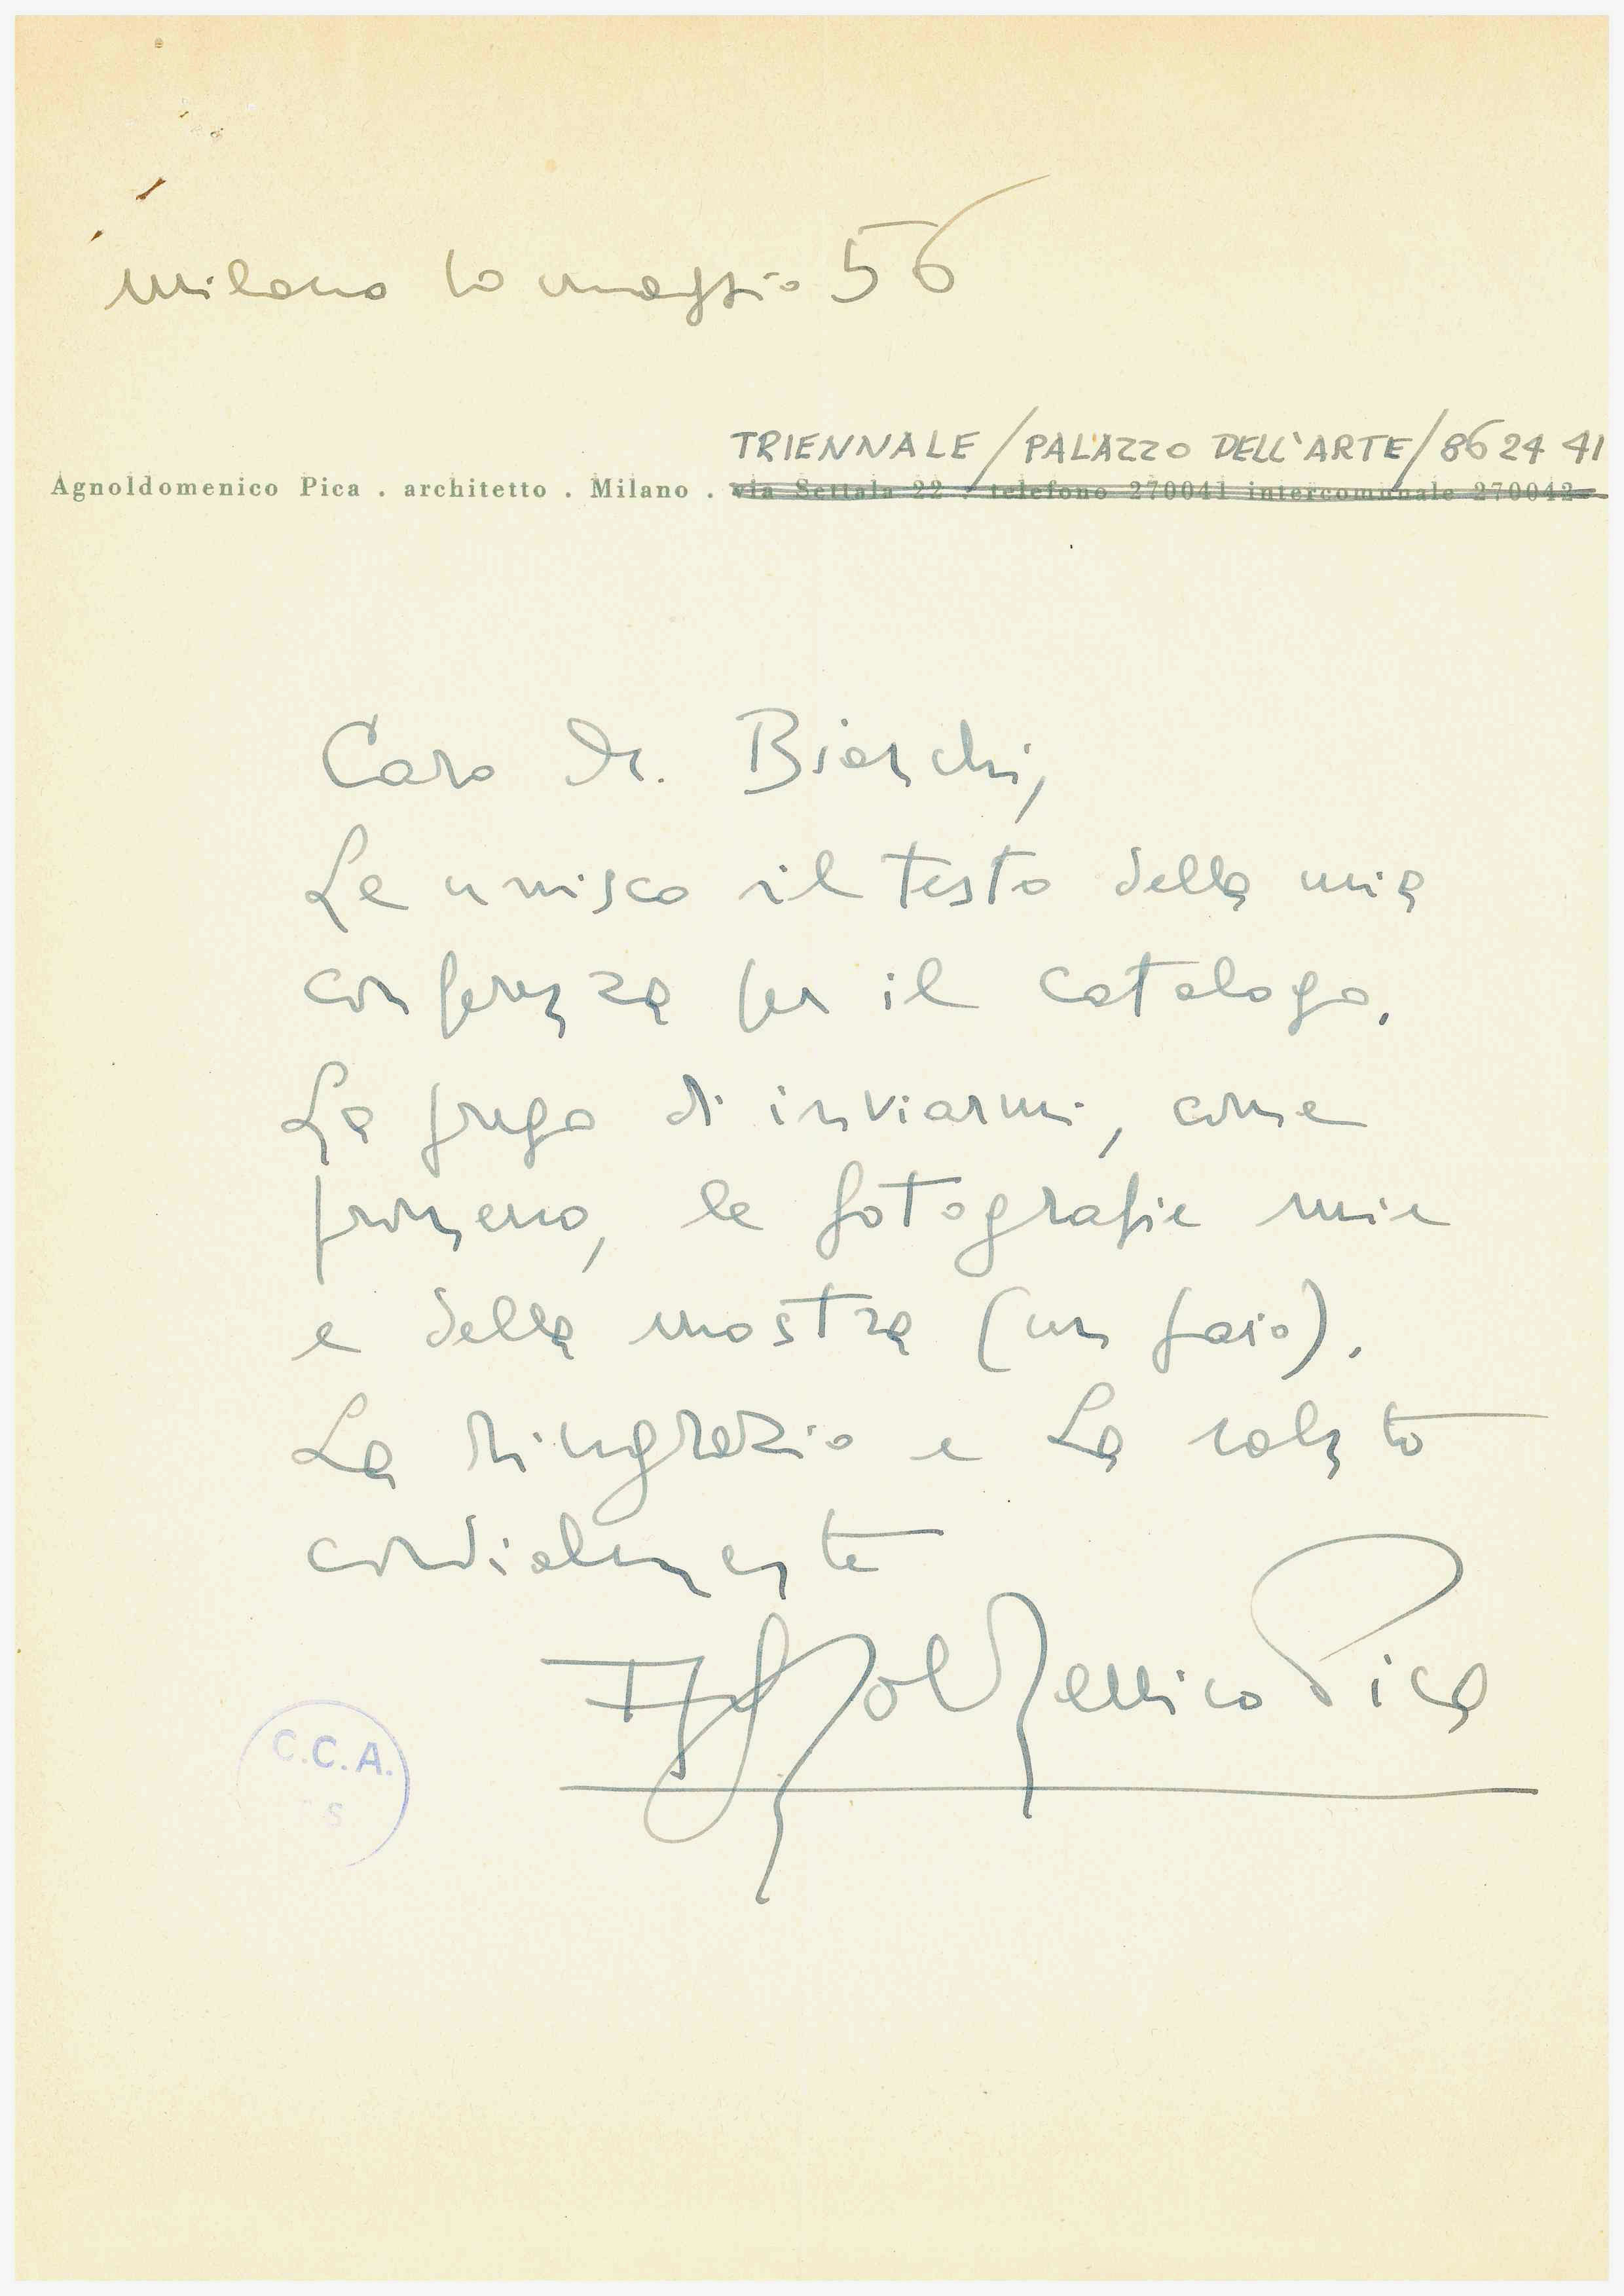 Milano 10 maggio 56
TRIENNALE / PALAZZO DELL'ARTE / 86 24 41
Agnoldomenico Pica . architetto . Milano . via Settala 22 . telefono 270041 intercomunale 270042
Caro Dr. Bianchi,
Le unisco il testo della mia
conferenza per il catalogo.
La prego di inviarmi, come
promesso, le fotografie mie
e della mostra (un paio).
La ringrazio e La saluto
cordialmente
Agnoldomenico Pica
C.C.A.
S